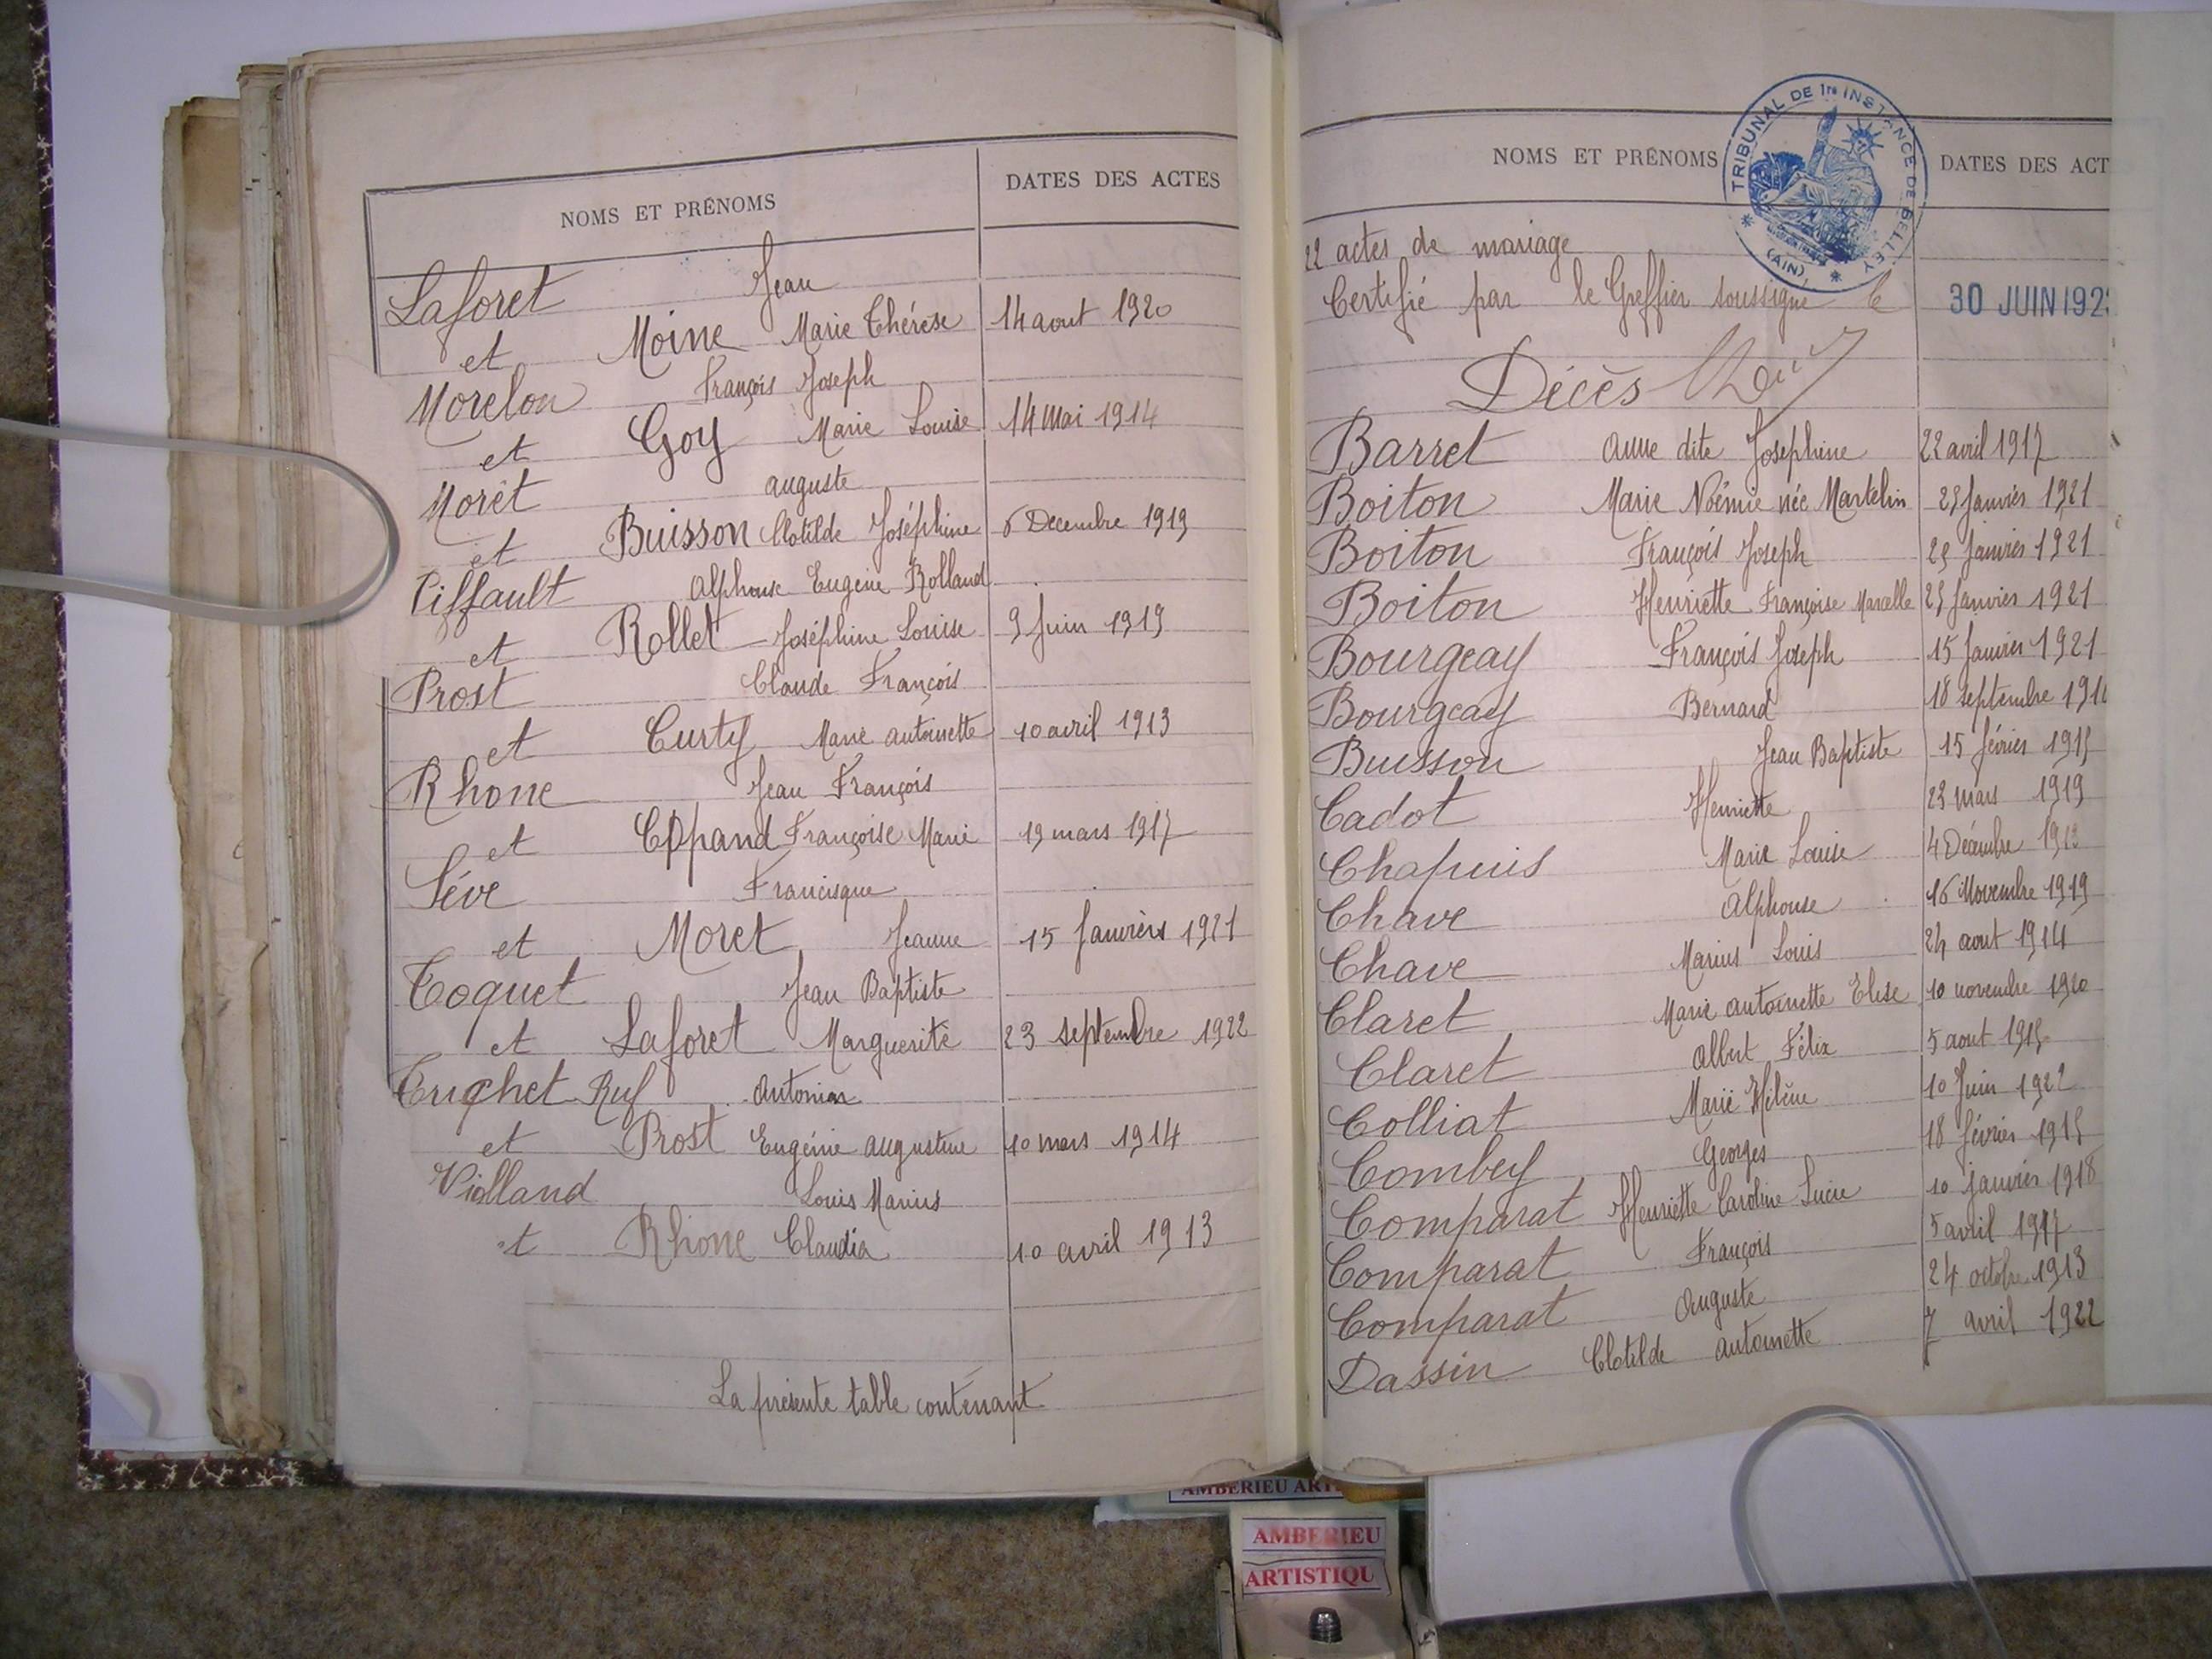 NOMS ET PRÉNOMS DATES DES ACTES
Laforet Jean
et Moine Marie Thérèse 14 aout 1920
Morelon François Joseph
et Goy Marie Louise 14 Mai 1914
Morêt auguste
et Buisson Clotilde Joséphine 6 Decembre 1919
Piffault Alphonse Eugène Rolland
et Rollet Joséphine Louise 9 Juin 1919
Prost Claude François
et Curty Marie antoinette 10 avril 1913
Rhone Jean François
et Françoise Marie 19 mars 1917
Sève Francisque
et Moret Jeanne 15 Janviers 1921
Toquet Jean Baptiste
et Laforet Marguerite 23 septembre 1922
Truchet Ruf
et Prost Eugénie augustine 10 mars 1914
Violland Louis Marius
et Rhone Claudia 10 avril 1913
La présente table contenant
NOMS ET PRÉNOMS DATES DES ACT
TRIBUNAL DE 1re INSTANCE DE BELLEY
(AIN)
22 actes de mariage
Certifié par le Greffier soussigné le 30 JUIN 192
Décès
Barret anne dite Josephine 22 avril 1917
Boiton Marie Noémie née Martelin Janvier 1921
Boiton François Joseph Janvier 1921
Boiton Henriette Françoise Marcelle Janvier 1921
Bourgeay François Joseph 15 Janvier 1921
Bourgeay Bernard 18 septembre
Buisson Jean Baptiste 15 février 1915
Cadot Henriette 23 mars 1919
Chapuis Marie Louise 4 Décembre 1913
Chave Alphonse 16 Novembre 1919
Chave Marius Louis 24 aout 1914
Claret Marie antoinette Elise 10 novembre 1920
Claret Albert Félix 5 aout 1915
Colliat Marie Hélène 10 Juin 1922
Combey Georges 18 février 1915
Comparat Henriette Caroline Lucie 10 janvier 1918
Comparat François 5 avril 1917
Comparat Auguste 24 octobre 1913
Dassin Clotilde antoinette 7 avril 1922
AMBERIEU
AMBERIEU
ARTISTIQU